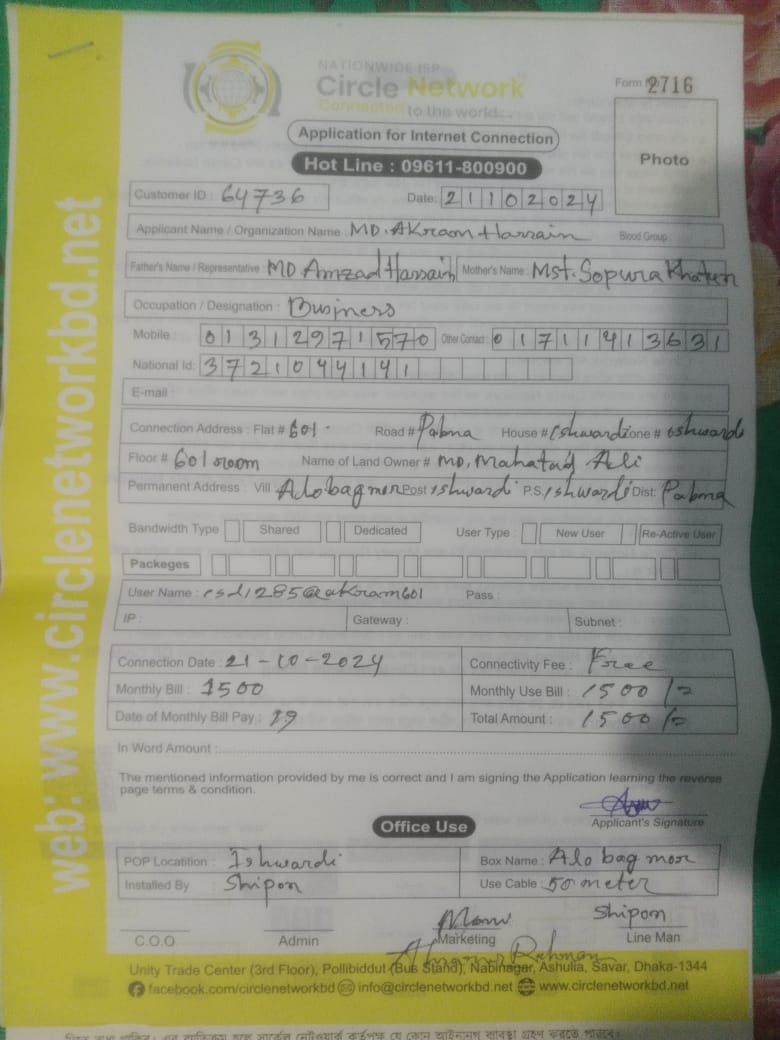 NATIONWIDE ISP
Circle Network
Connected to the world...
Form 2716
Application for Internet Connection
Hot Line : 09611-800900
Photo
Customer ID : 64736 Date: 21102024
Applicant Name / Organization Name : MD. AKram Hossain Blood Group :
Father's Name / Representative : MD Amzad Hossain Mother's Name : Mst. Sopura Khatun
Occupation / Designation : Business
Mobile : 01312971570 Other Contact : 01711413631
National Id: 3721044141
E-mail :
Connection Address : Flat # 601 Road # Pabna House # Ishwardi Zone # Ishwardi
Floor # 601 room Name of Land Owner # MD, Mahatab Ali
Permanent Address : Vill Alobagmor Post Ishwardi P.S. Ishwardi Dist: Pabna
Bandwidth Type Shared Dedicated User Type : New User Re-Active User
Packeges
User Name : esd1285@akram601 Pass :
IP : Gateway : Subnet :
Connection Date : 21-10-2024 Connectivity Fee : Free
Monthly Bill : 1500 Monthly Use Bill : 1500/=
Date of Monthly Bill Pay : 19 Total Amount : 1500/=
In Word Amount :
The mentioned information provided by me is correct and I am signing the Application learning the reverse
page terms & condition.
Applicant's Signature
Office Use
POP Locatition : Ishwardi Box Name : Alobag mor
Installed By : Shipon Use Cable : 50 meter
Shipon
C.O.O Admin Marketing Line Man
Unity Trade Center (3rd Floor), Pollibiddut (Bus Stand), Nabinagar, Ashulia, Savar, Dhaka-1344
facebook.com/circlenetworkbd info@circlenetworkbd.net www.circlenetworkbd.net
web: www.circlenetworkbd.net